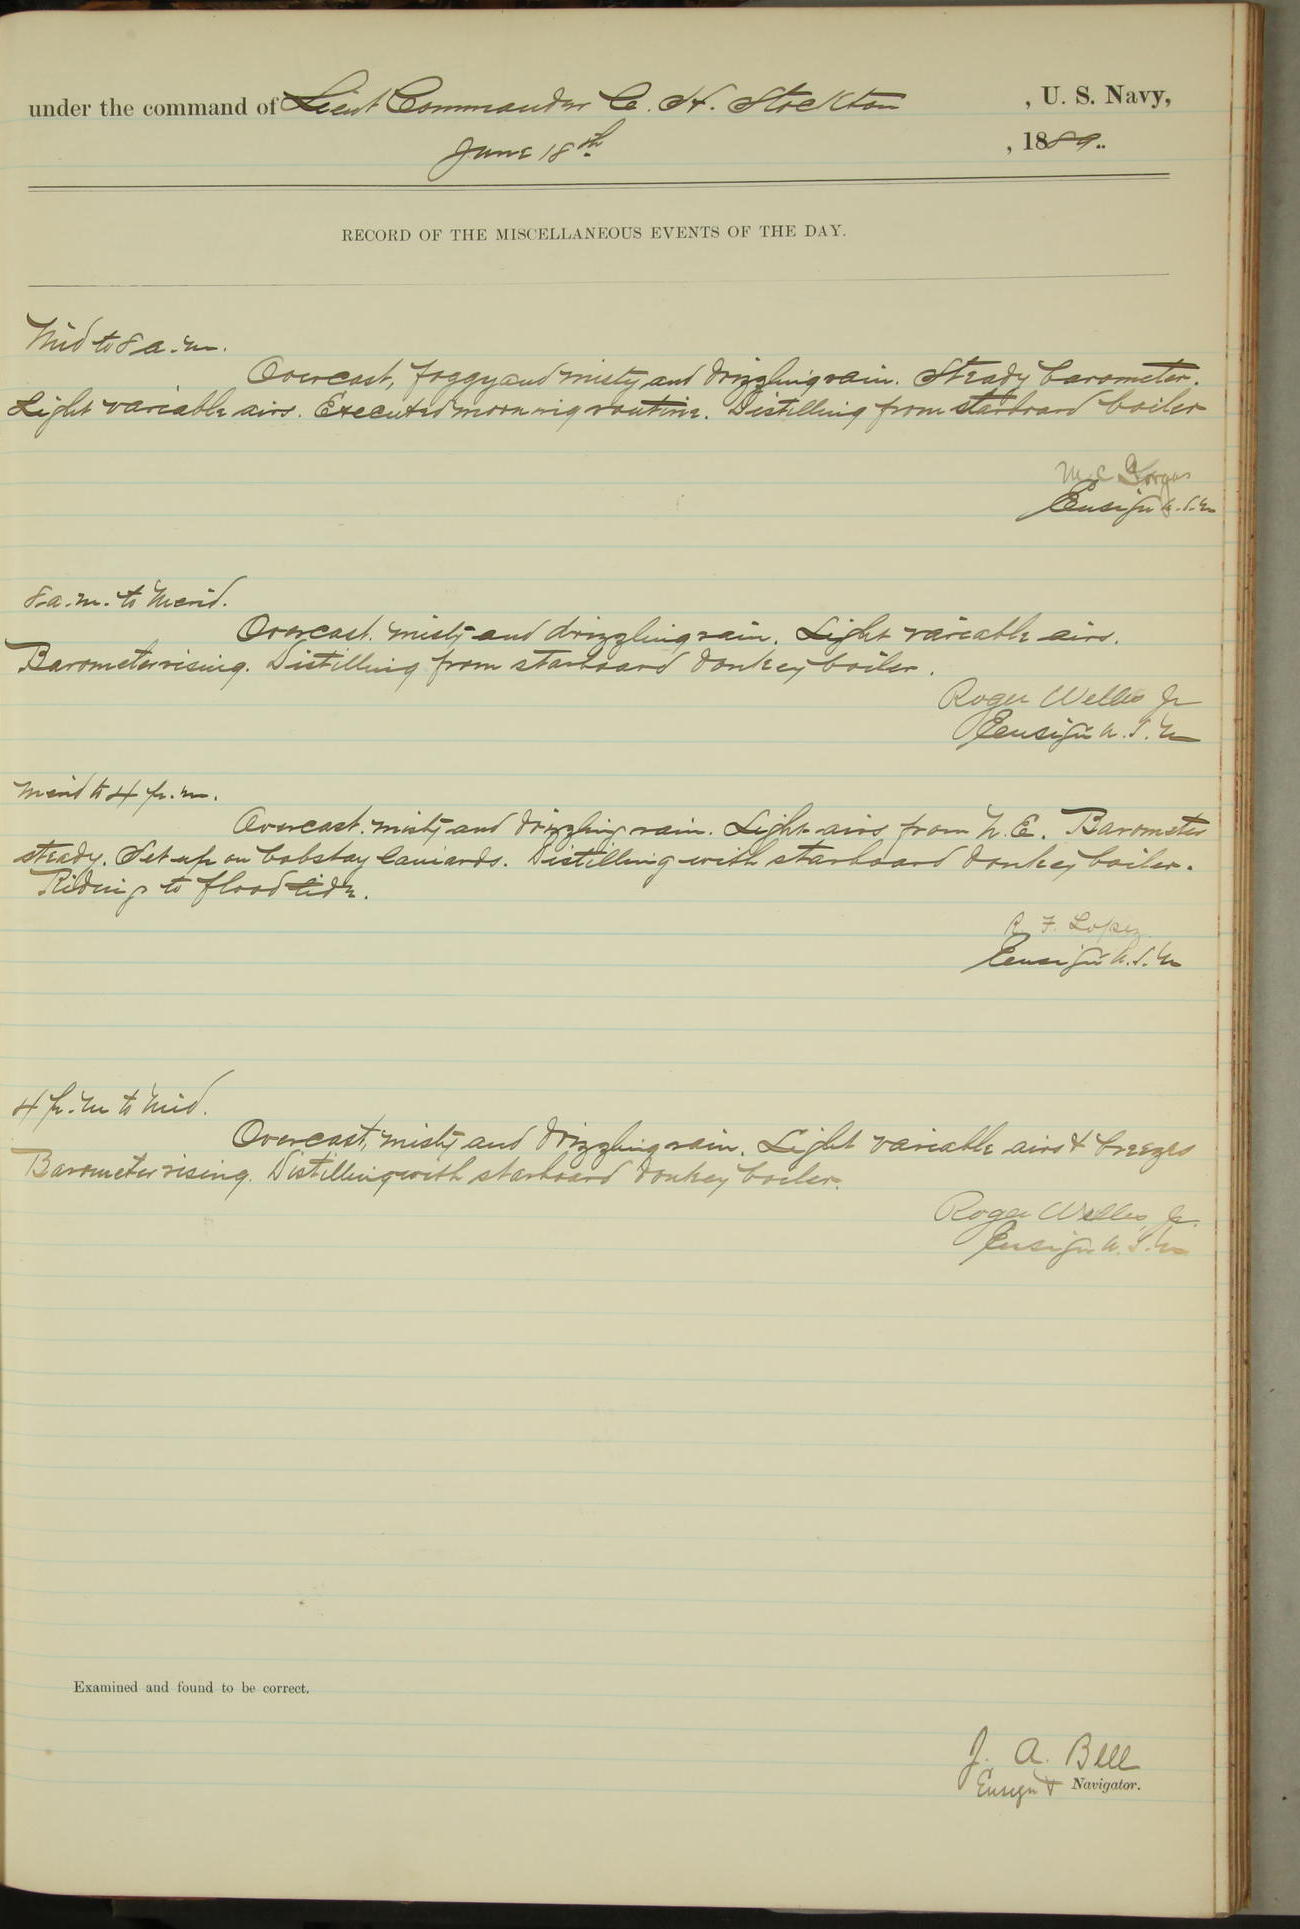 under the command of Lieut Commander C. H. Stockton , U. S. Navy,
June 18th , 1889.
RECORD OF THE MISCELLANEOUS EVENTS OF THE DAY.
Mid to 8 a.m.
Overcast, foggy and misty and drizzling rain. Steady barometer.
Light variable airs. Executed morning routine. Distilling from starboard boiler
M. L.
Ensign U.S.N
8 a.m. to Merid.
Overcast. misty and drizzling rain. Light variable airs.
Barometer rising. Distilling from starboard donkey boiler.
Roger Welles Jr
Ensign U.S.N
Merid to 4 p.m.
Overcast. misty and drizzling rain. Light airs from N.E. Barometer
steady. Set up on bobstay laniards. Distilling with starboard donkey boiler.
Riding to flood tide.
R. F. Lopez
Ensign U.S.N
4 p.m to Mid.
Overcast, misty and drizzling rain. Light variable airs & breezes
Barometer rising. Distilling with starboard donkey boiler.
Roger Welles, Jr.
Ensign U.S.N
Examined and found to be correct.
J. A. Bell
Ensign & Navigator.